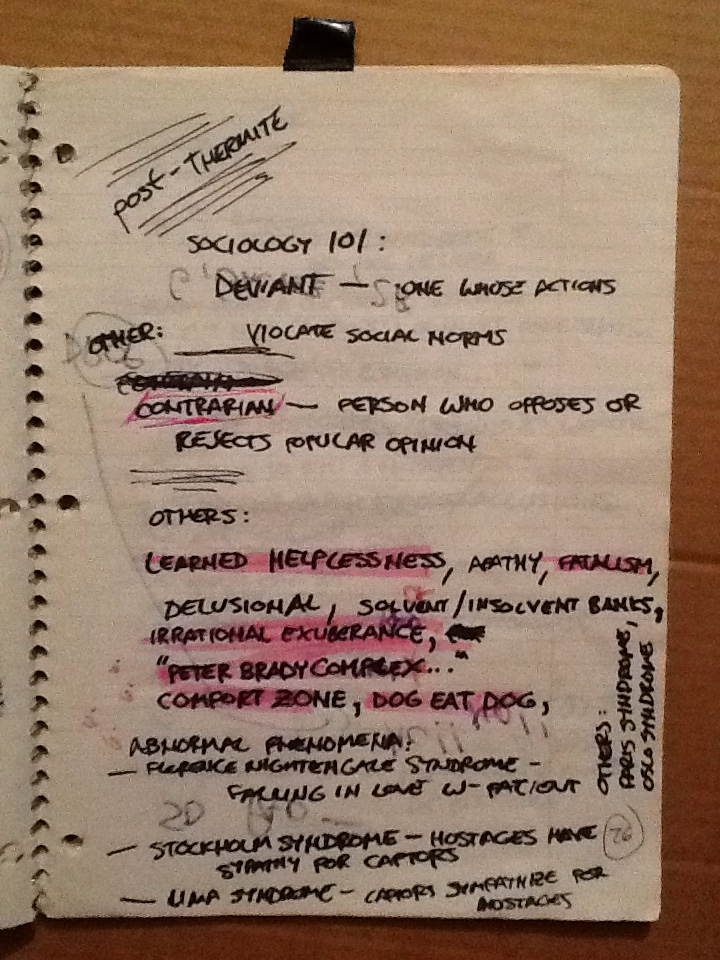 POST-THERMITE
SOCIOLOGY 101:
DEVIANT — ONE WHOSE ACTIONS
VIOLATE SOCIAL NORMS
OTHER:
CONTRARIAN — PERSON WHO OPPOSES OR
REJECTS POPULAR OPINION
OTHERS:
LEARNED HELPLESSNESS, APATHY, FATALISM,
DELUSIONAL, SOLVENT/INSOLVENT BANKS,
IRRATIONAL EXUBERANCE,
"PETER BRADY COMPLEX..."
COMFORT ZONE, DOG EAT DOG,
ABNORMAL PHENOMENA:
— FLORENCE NIGHTENGALE SYNDROME -
FALLING IN LOVE W-PATIENT
— STOCKHOLM SYNDROME - HOSTAGES HAVE
SYPATHY FOR CAPTORS
— LIMA SYNDROME - CAPTORS SYMPATHIZE FOR
HOSTAGES
OTHERS:
PARIS SYNDROME,
OSLO SYNDROME
76